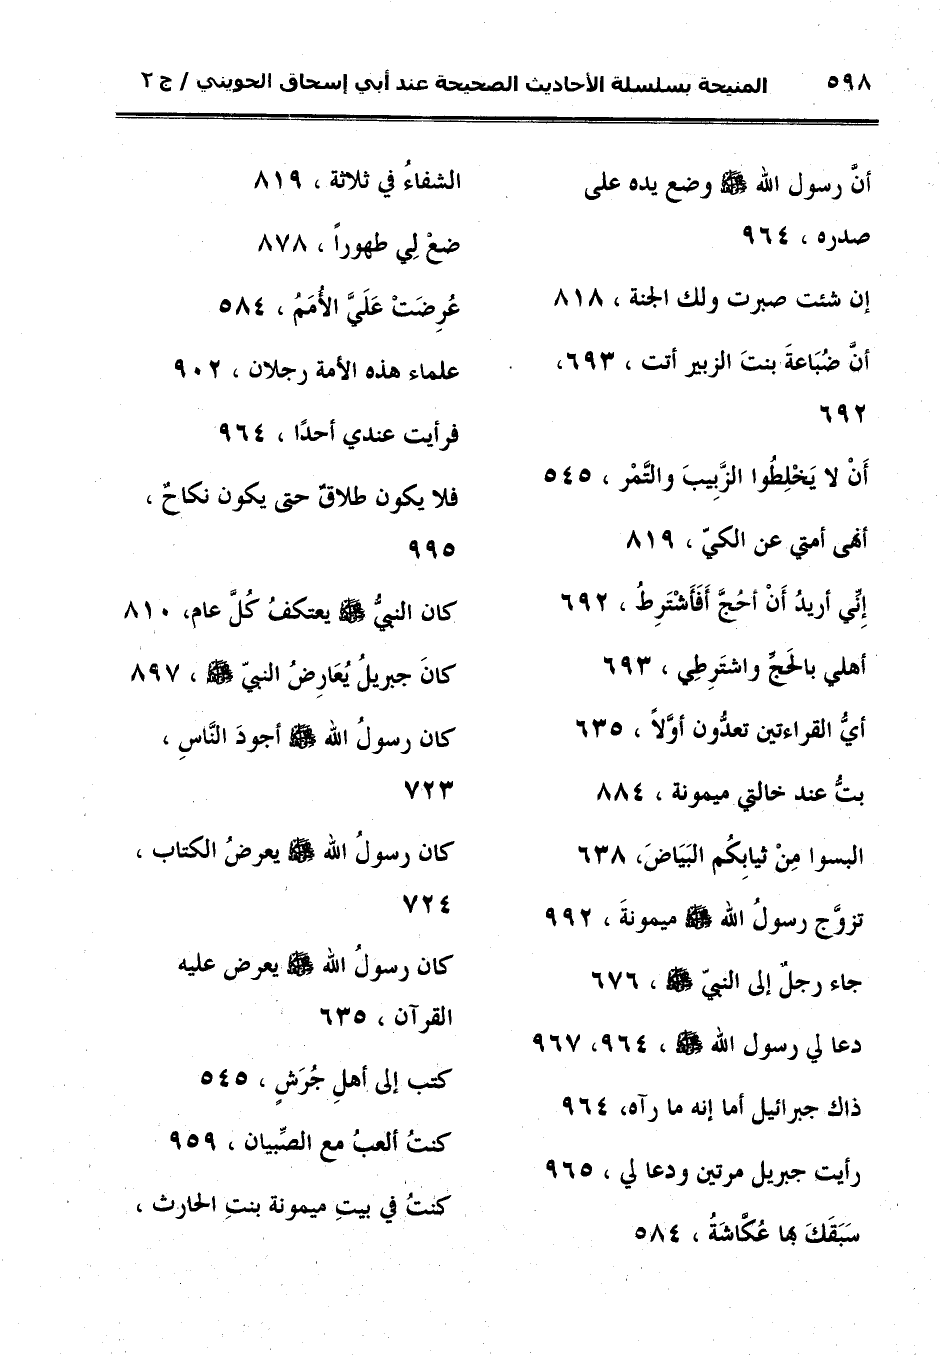 ٥٩٨ المنيحة بسلسلة الأحاديث الصحيحة عند أبي إسحاق الحويني / ج ٢
أنَّ رسول الله ﷺ وضع يده على
صدره ، ٩٦٤
إن شئت صبرت ولك الجنة ، ٨١٨
أنَّ ضُبَاعةَ بنتَ الزبير أتت ، ٦٩٣،
٦٩٢
أَنْ لا يَخْلِطُوا الزَّبِيبَ والتَّمْر ، ٥٤٥
أنهى أمتي عن الكيّ ، ٨١٩
إنِّي أريدُ أَنْ أحُجَّ أَفَأَشْتَرِطُ ، ٦٩٢
أهلي بالحَجِّ واشتَرِطِي ، ٦٩٣
أيُّ القراءتين تعدُّون أوَّلاً ، ٦٣٥
بتُّ عند خالتي ميمونة ، ٨٨٤
البسوا مِنْ ثيابِكُم البَيَاضَ، ٦٣٨
تزوَّج رسولُ الله ﷺ ميمونةَ ، ٩٩٢
جاء رجلٌ إلى النبيّ ﷺ ، ٦٧٦
دعا لي رسول الله ﷺ ، ٩٦٤، ٩٦٧
ذاك جبرائيل أما إنه ما رآه، ٩٦٤
رأيت جبريل مرتين ودعا لي ، ٩٦٥
سَبَقَكَ بها عُكَّاشَةُ ، ٥٨٤
الشفاءُ في ثلاثة ، ٨١٩
ضعْ لِي طهوراً ، ٨٧٨
عُرِضَتْ عَلَيَّ الأُمَمُ ، ٥٨٤
علماء هذه الأمة رجلان ، ٩٠٢
فرأيت عندي أحدًا ، ٩٦٤
فلا يكون طلاقٌ حتى يكون نكاحٌ ،
٩٩٥
كان النبيُّ ﷺ يعتكفُ كُلَّ عام، ٨١٠
كانَ جبريلُ يُعَارِضُ النبيّ ﷺ ، ٨٩٧
كان رسولُ الله ﷺ أجودَ النَّاسِ ،
٧٢٣
كان رسولُ الله ﷺ يعرضُ الكتاب ،
٧٢٤
كان رسولُ الله ﷺ يعرض عليه
القرآن ، ٦٣٥
كتب إلى أهلِ جُرَشٍ ، ٥٤٥
كنتُ ألعبُ مع الصِّبيان ، ٩٥٩
كنتُ في بيتِ ميمونة بنتِ الحارث ،